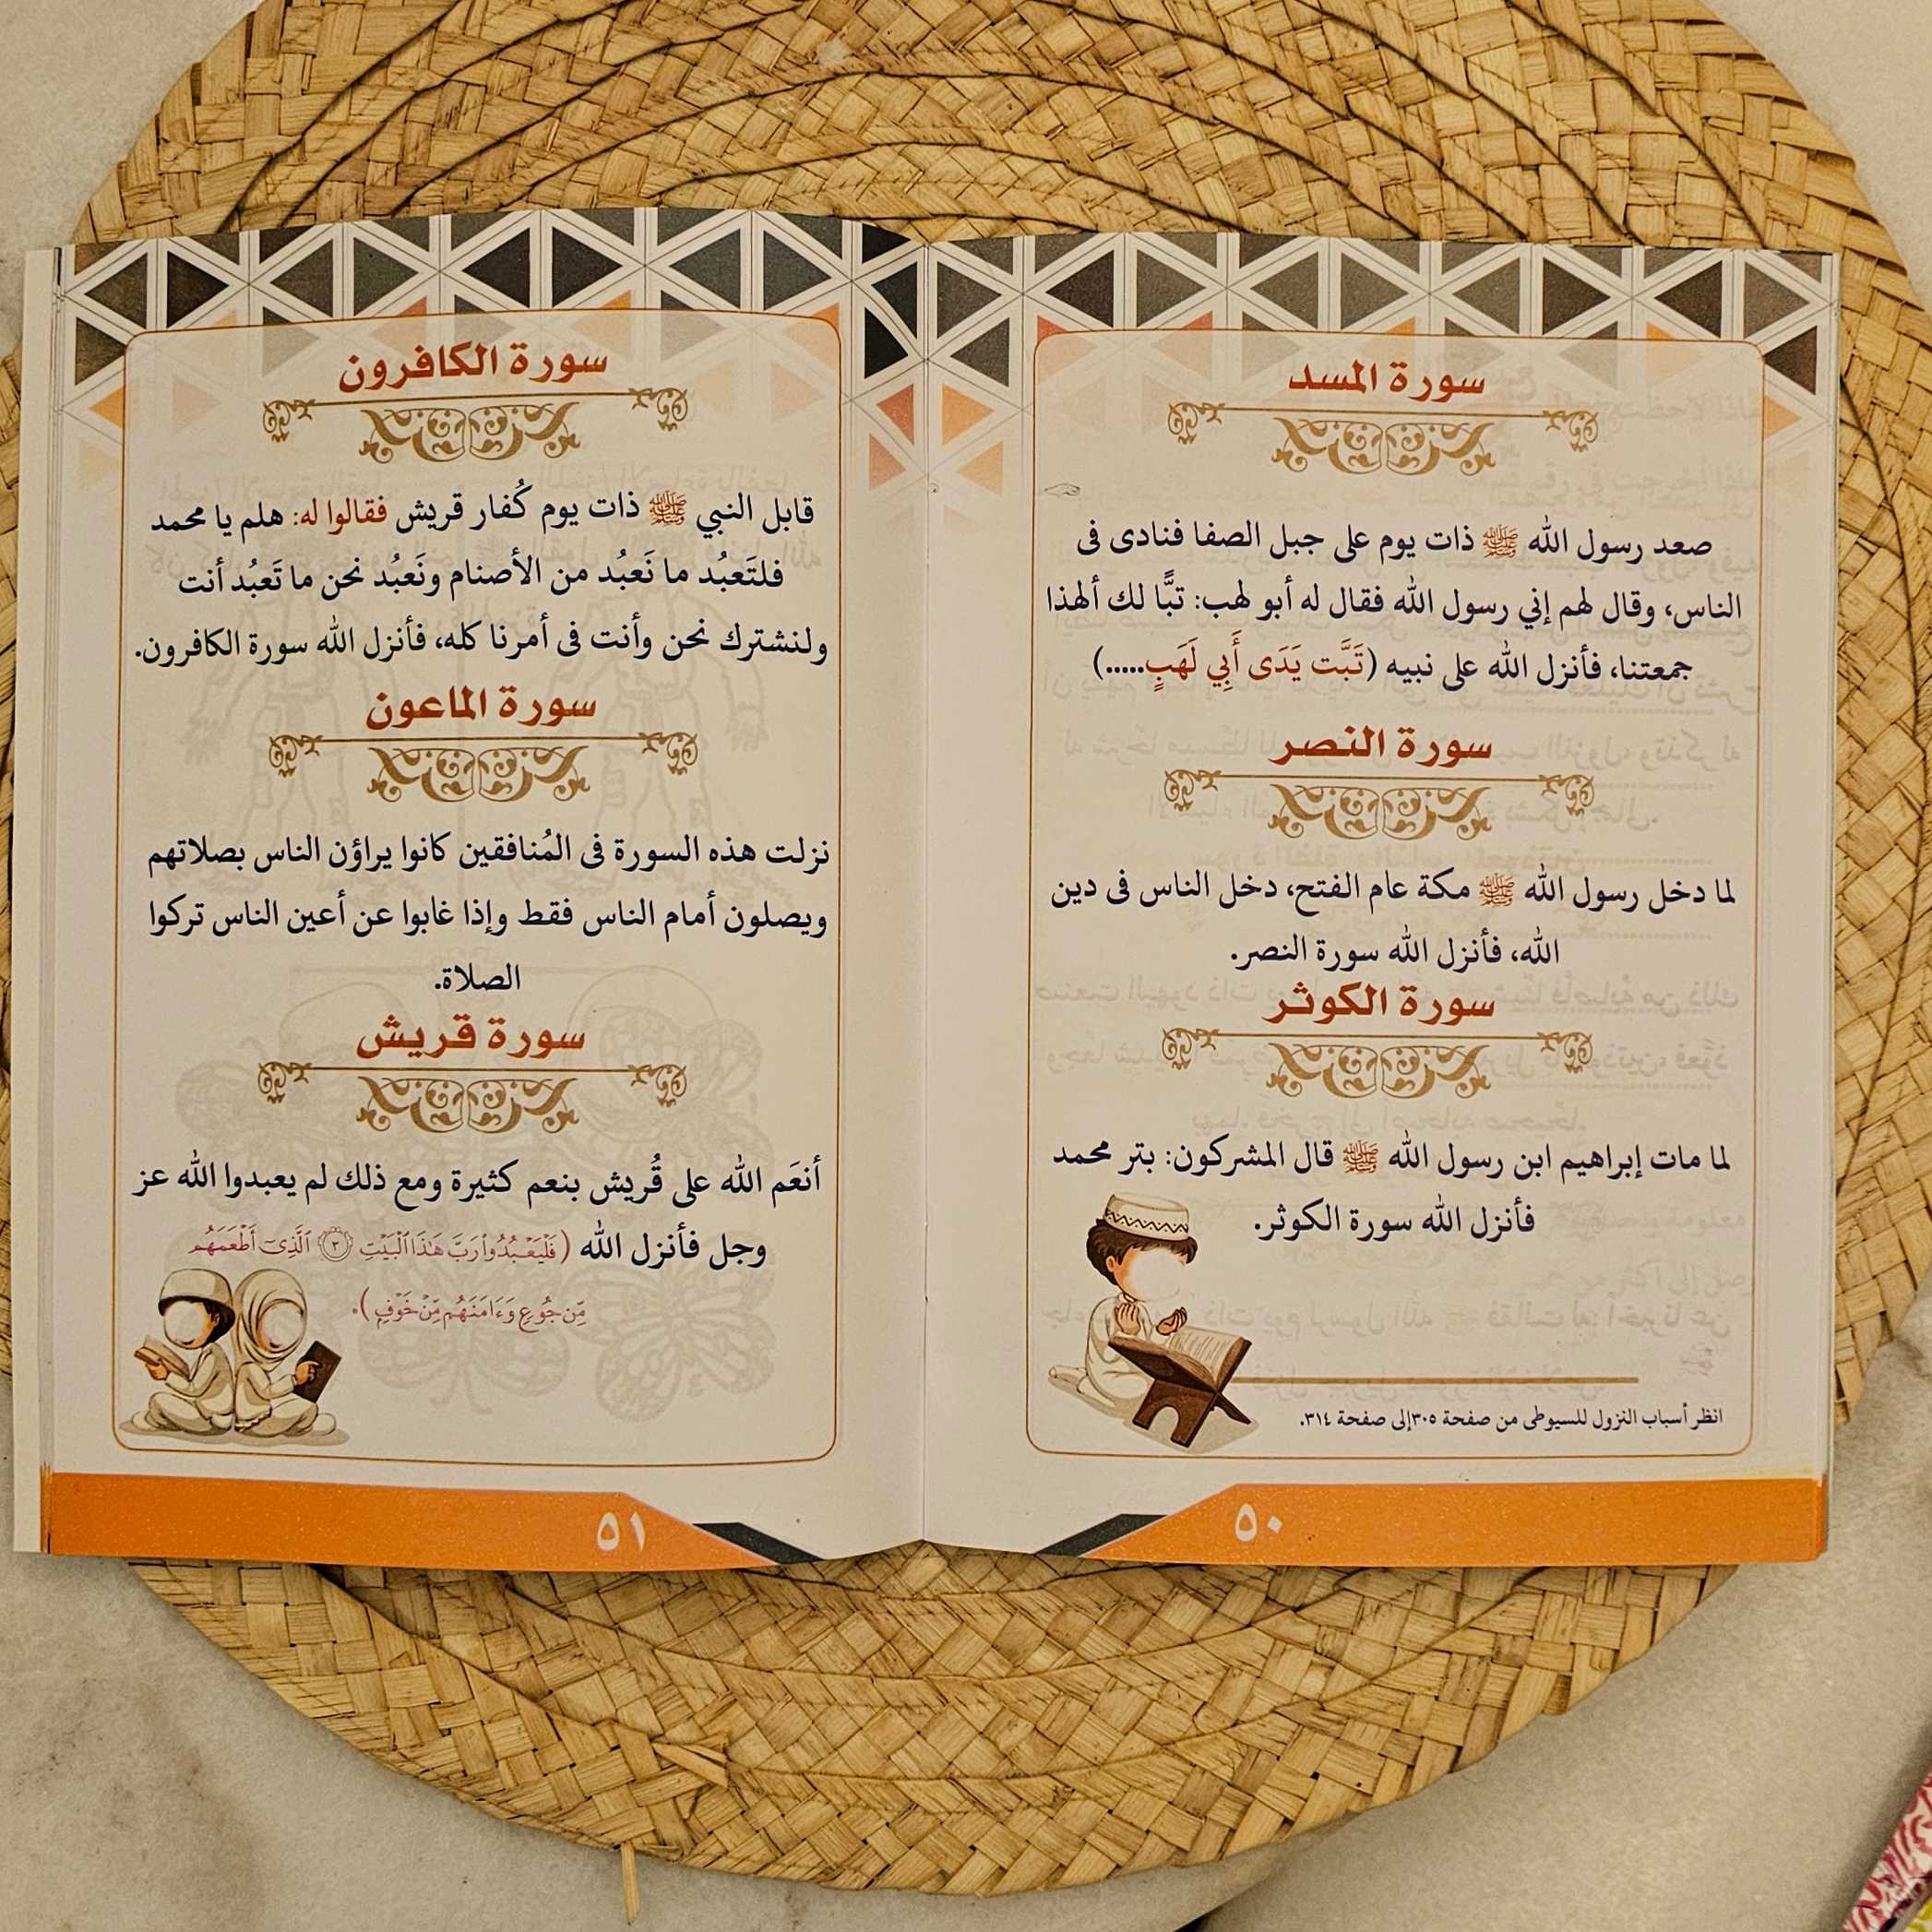 سورة المسد
صعد رسول الله ﷺ ذات يوم على جبل الصفا فنادى فى
الناس، وقال لهم إني رسول الله فقال له أبو لهب: تبًّا لك ألهذا
جمعتنا، فأنزل الله على نبيه (تَبَّت يَدَى أَبِي لَهَبٍ.....)
سورة النصر
لما دخل رسول الله ﷺ مكة عام الفتح، دخل الناس فى دين
الله، فأنزل الله سورة النصر.
سورة الكوثر
لما مات إبراهيم ابن رسول الله ﷺ قال المشركون: بتر محمد
فأنزل الله سورة الكوثر.
انظر أسباب النزول للسيوطى من صفحة ٣٠٥إلى صفحة ٣١٤.
٥٠
سورة الكافرون
قابل النبي ﷺ ذات يوم كُفار قريش فقالوا له: هلم يا محمد
فلتَعبُد ما نَعبُد من الأصنام ونَعبُد نحن ما تَعبُد أنت
ولنشترك نحن وأنت فى أمرنا كله، فأنزل الله سورة الكافرون.
سورة الماعون
نزلت هذه السورة فى المُنافقين كانوا يراؤن الناس بصلاتهم
ويصلون أمام الناس فقط وإذا غابوا عن أعين الناس تركوا
الصلاة.
سورة قريش
أنعَم الله على قُريش بنعم كثيرة ومع ذلك لم يعبدوا الله عز
وجل فأنزل الله (فَلْيَعْبُدُوا۟ رَبَّ هَٰذَا ٱلْبَيْتِ ٣ ٱلَّذِىٓ أَطْعَمَهُم
مِّن جُوعٍ وَءَامَنَهُم مِّنْ خَوْفٍ).
٥١